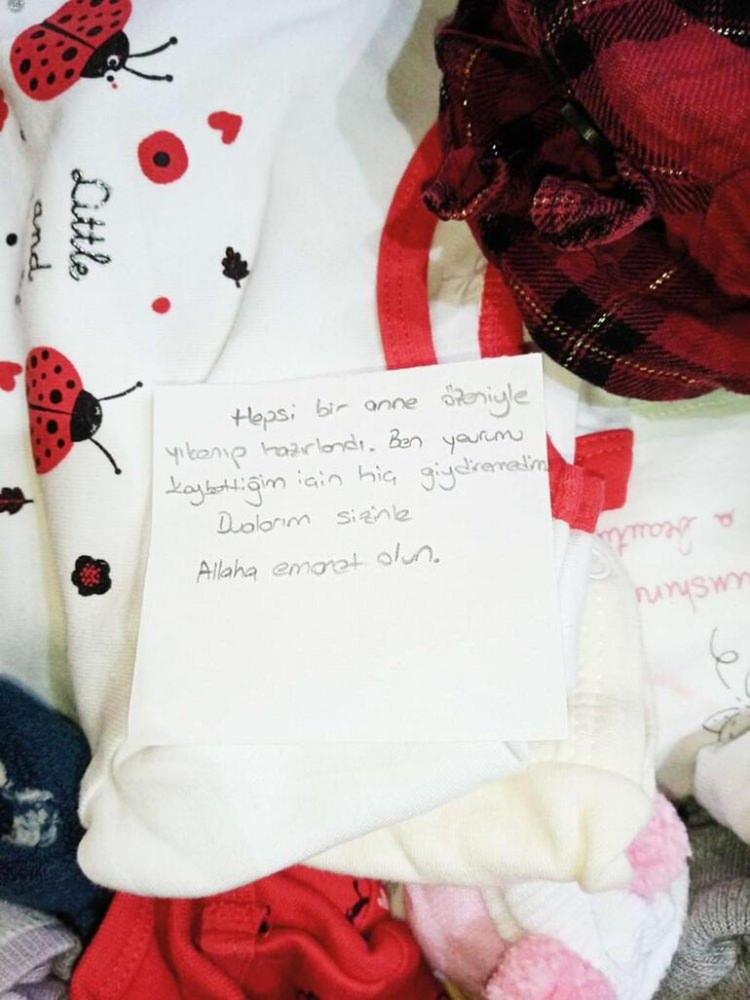 Little
and
Hepsi bir anne özeniyle
yıkanıp hazırlandı. Ben yavrumu
kaybettiğim için hiç giydiremedim
Dualarım sizinle
Allaha emanet olun.
a beauti
sunshine